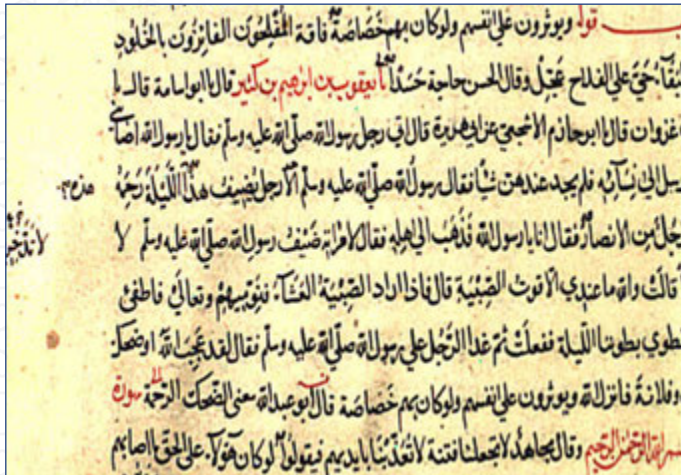 قوله ويوثرون على انفسهم ولو كان بهم خصاصة فاقة المفلحون الفائزون بالخلود
حي على الفلاح عجل وقال الحسن حاجة حسدا يعقوب بن ابرهيم بن كثير قال ابو اسامة قال
غزوان قال ابو حازم الاشجعي عن ابي هريرة قال اتى رجل رسول الله صلى الله عليه وسلم فقال يا رسول الله اصابني
رسل الى نسآئه فلم يجد عندهن شيأ فقال رسول الله صلى الله عليه وسلم الا رجل يضيف هذا الليلة رحمه هذه
رجل من الانصار فقال انا يا رسول الله فذهب الى اهله فقال لامراته ضيف رسول الله صلى الله عليه وسلم لا
قالت والله ما عندي الا قوت الصبية قال فاذا اراد الصبية العشآء فنوميهم وتعالي فاطفئي
نطوي بطوننا الليلة ففعلت ثم غدا الرجل على رسول الله صلى الله عليه وسلم فقال لقد عجب الله او ضحك
وفلانة فانزل الله ويوثرون على انفسهم ولو كان بهم خصاصة قال ابو عبدالله معنى الضحك الرحمة سورة
بسم الله الرحمن الرحيم وقال مجاهد لا تجعلنا فتنة لا تعذبنا بايديهم فيقولون لو كان هولاء على الحق ما اصابهم